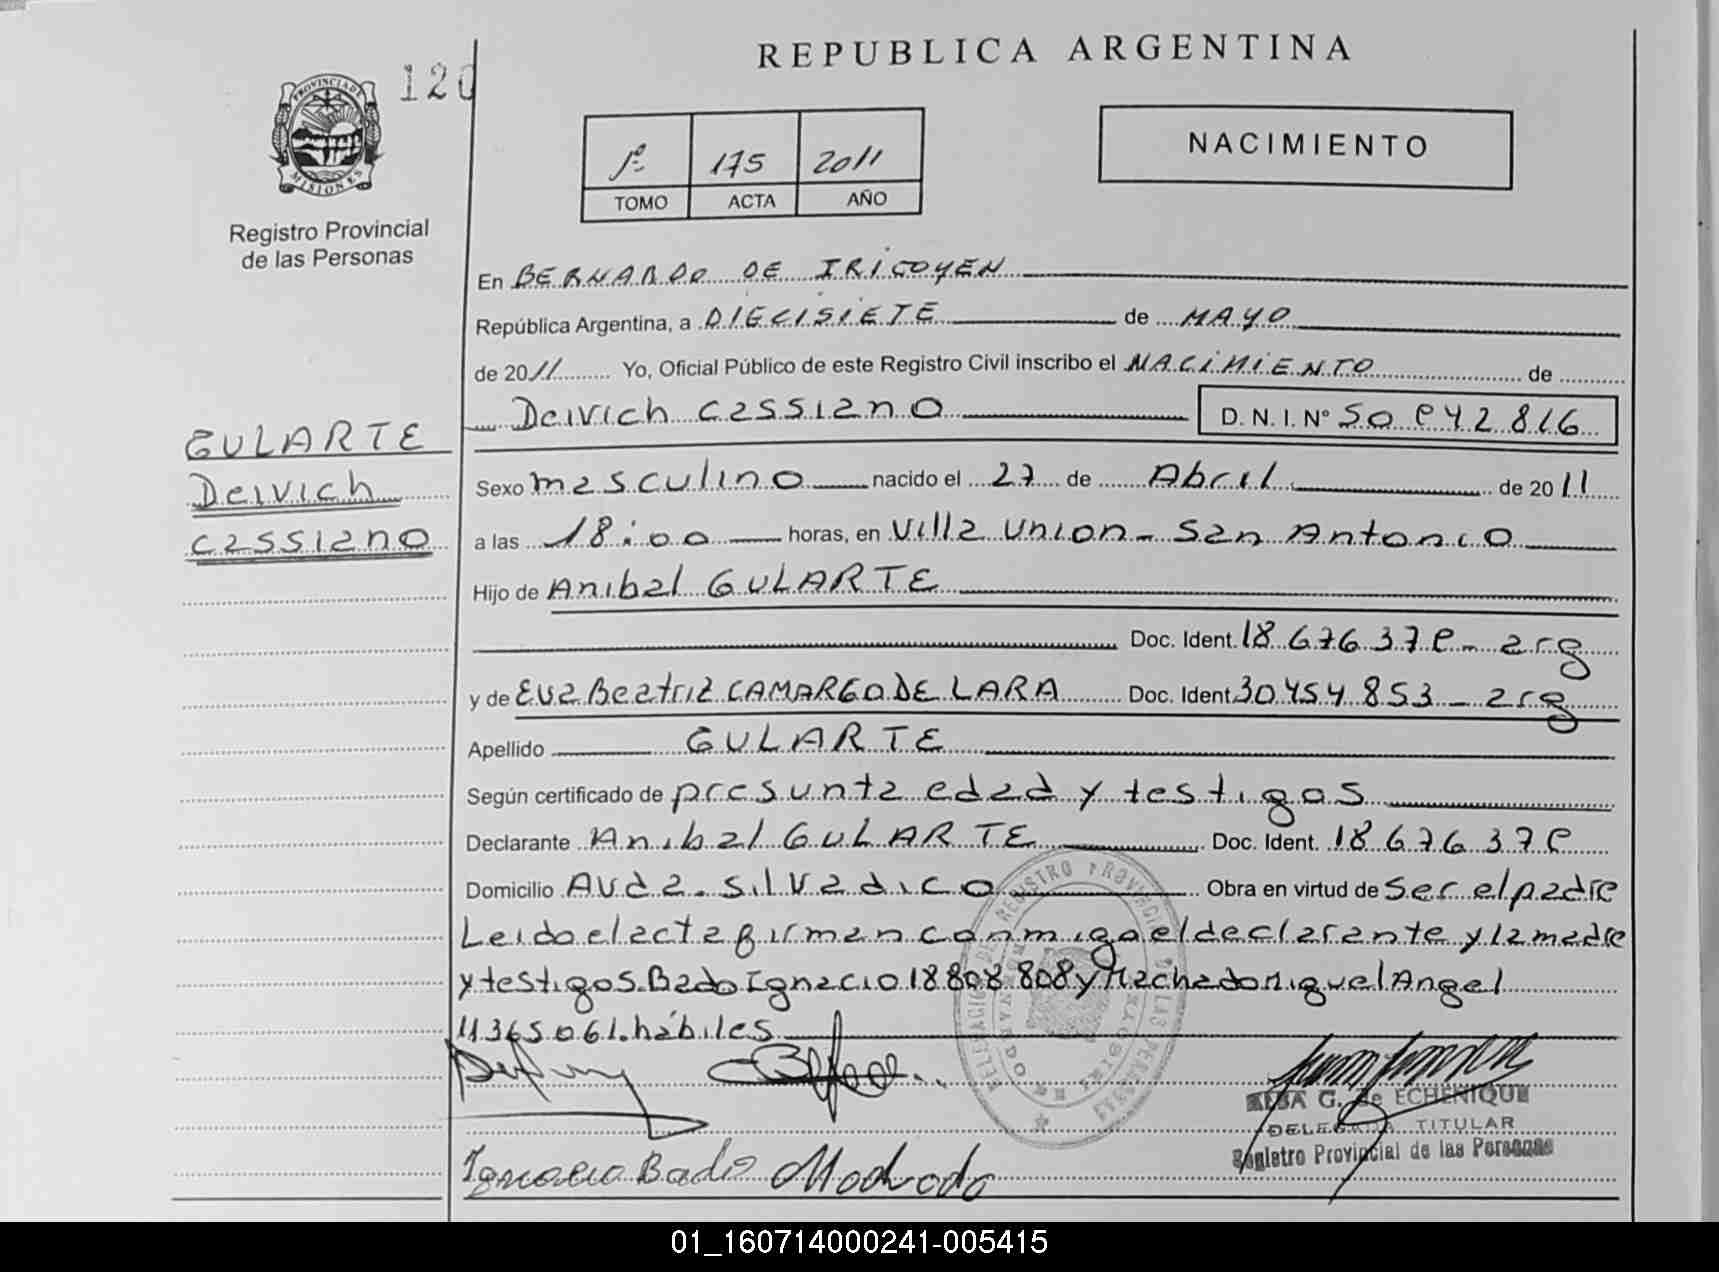 REPUBLICA ARGENTINA
120
PROVINCIA DE
MISIONES
Registro Provincial
de las Personas
1º 175 2011
TOMO ACTA AÑO
NACIMIENTO
En BERNARDO DE IRIGOYEN
República Argentina, a DIECISIETE de MAYO
de 2011 Yo, Oficial Público de este Registro Civil inscribo el NACIMIENTO de
Deivich cassiano D. N. I. Nº
GULARTE
Deivich
cassiano
Sexo masculino nacido el 27 de Abril de 2011
a las 18:00 horas, en Villa Union - San Antonio
Hijo de Anibal GULARTE
Doc. Ident. arg
y de Eva Beatriz CAMARGO DE LARA Doc. Ident. 30454.853 - arg
Apellido GULARTE
Según certificado de presunta edad y testigos
Declarante Anibal GULARTE Doc. Ident.
Domicilio Avda. Silvadico Obra en virtud de ser el padre
Leido el acta firman conmigo el declarante y la madre
y testigos. Bado Ignacio 18808808 y Machado Miguel Angel
11365061. hábiles
ALBA G. de ECHENIQUE
DELEGADA TITULAR
Registro Provincial de las Personas
Ignacio Bado Machado
01_160714000241-005415